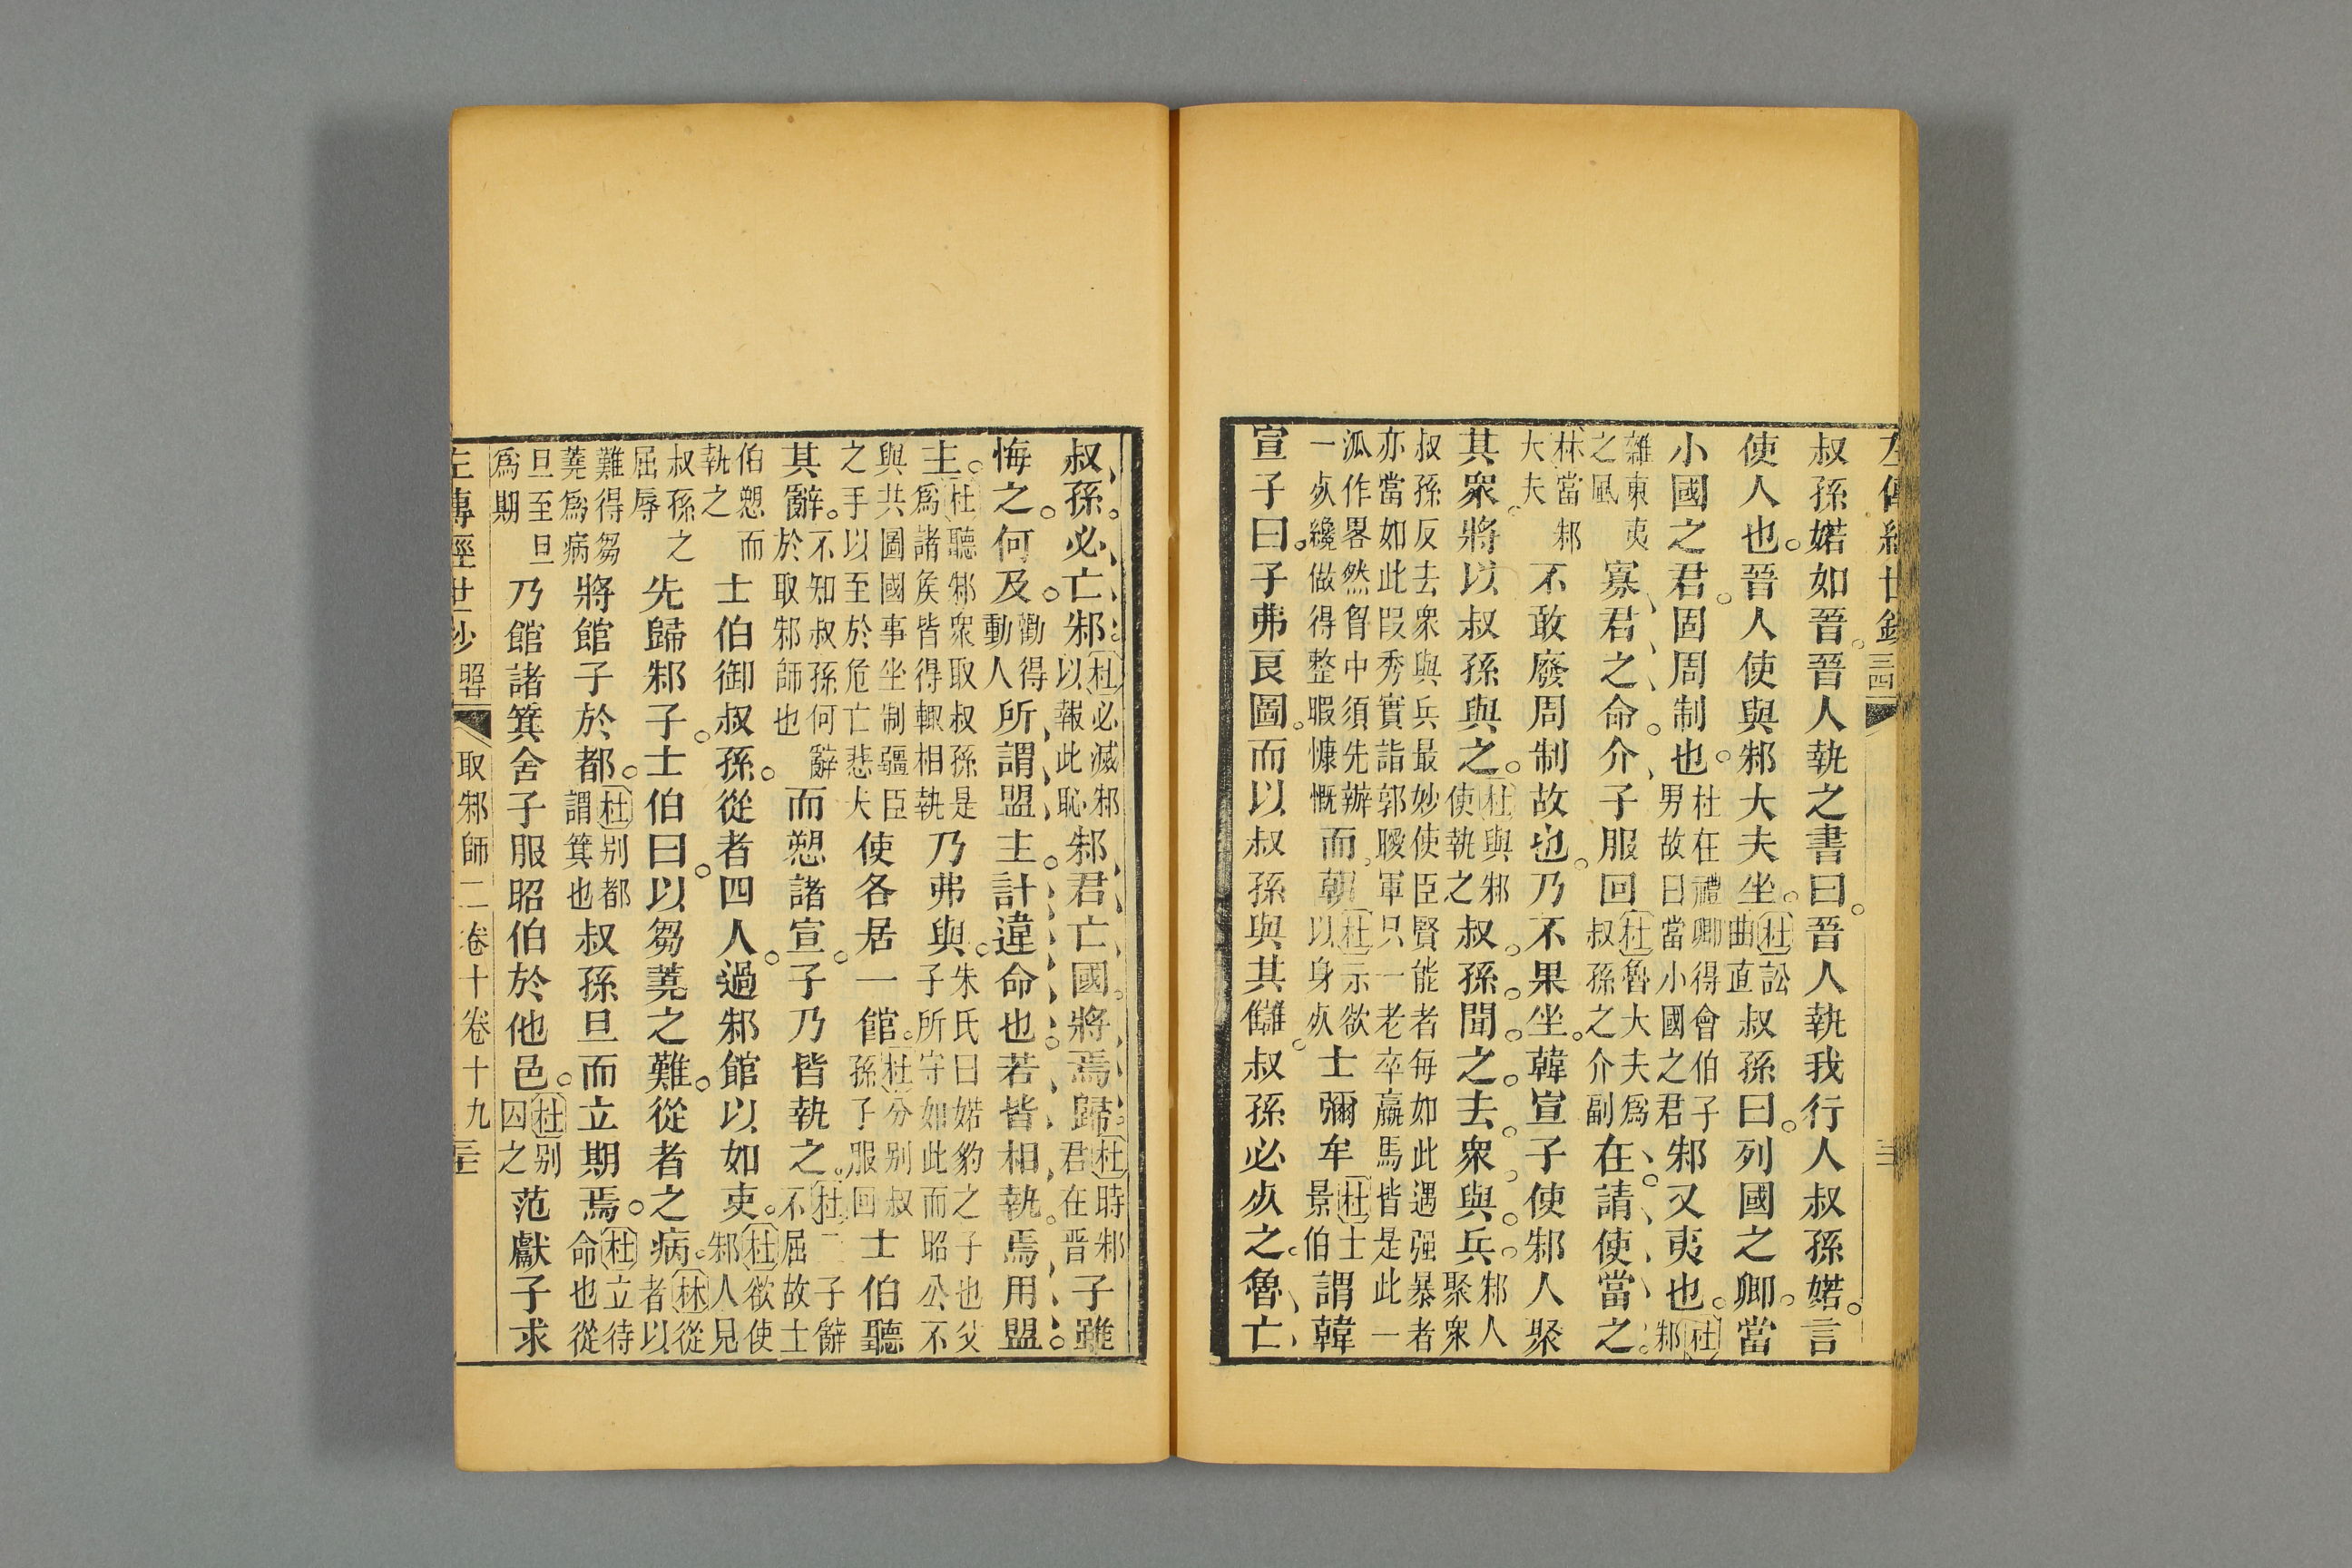 左傳經世鈔
叔孫婼如晉晉人執之書曰晉人執我行人叔孫婼言
使人也晉人使與邾大夫坐杜訟曲直叔孫曰列國之卿當
小國之君固周制也杜在禮卿得會伯子男故曰當小國之君邾又夷也杜邾
雜東夷之風寡君之命介子服回杜魯大夫爲叔孫之介副在請使當之
林當邾大夫不敢廢周制故也乃不果坐韓宣子使邾人聚
其衆將以叔孫與之杜與邾使執之叔孫聞之去衆與兵邾人聚衆
叔孫反去衆與兵最妙使臣賢能者每如此遇强暴者亦當如此叚秀實詣郭曖軍只一老卒羸馬皆是此一
泒作畧然胷中須先辦一㱦纔做得整暇慷慨而朝杜示欲以身㱦士彌牟杜士景伯謂韓
宣子曰子弗良圖而以叔孫與其讎叔孫必㱦之魯亡
叔孫必亡邾杜必滅邾以報此恥邾君亡國將焉歸杜時邾君在晉子雖
悔之何及勸得動人所謂盟主計違命也若皆相執焉用盟
主杜聽邾衆取叔孫是爲諸矦皆得輒相執乃弗與朱氏曰婼豹之子也父子所守如此而昭公不
與共圖國事坐制疆臣之手以至於危亡悲夫使各居一館杜分别叔孫子服回士伯聽
其辭不知叔孫何辭於取邾師也而愬諸宣子乃皆執之杜二子辭不屈故士
伯愬而執之士伯御叔孫從者四人過邾館以如吏杜欲使邾人見
叔孫之屈辱先歸邾子士伯曰以芻蕘之難從者之病林從者以
難得芻蕘爲病將館子於都杜别都謂箕也叔孫旦而立期焉杜立待命也從
旦至旦爲期乃館諸箕舍子服昭伯於他邑杜别囚之范獻子求
左傳經世鈔 取邾師二卷十卷十九